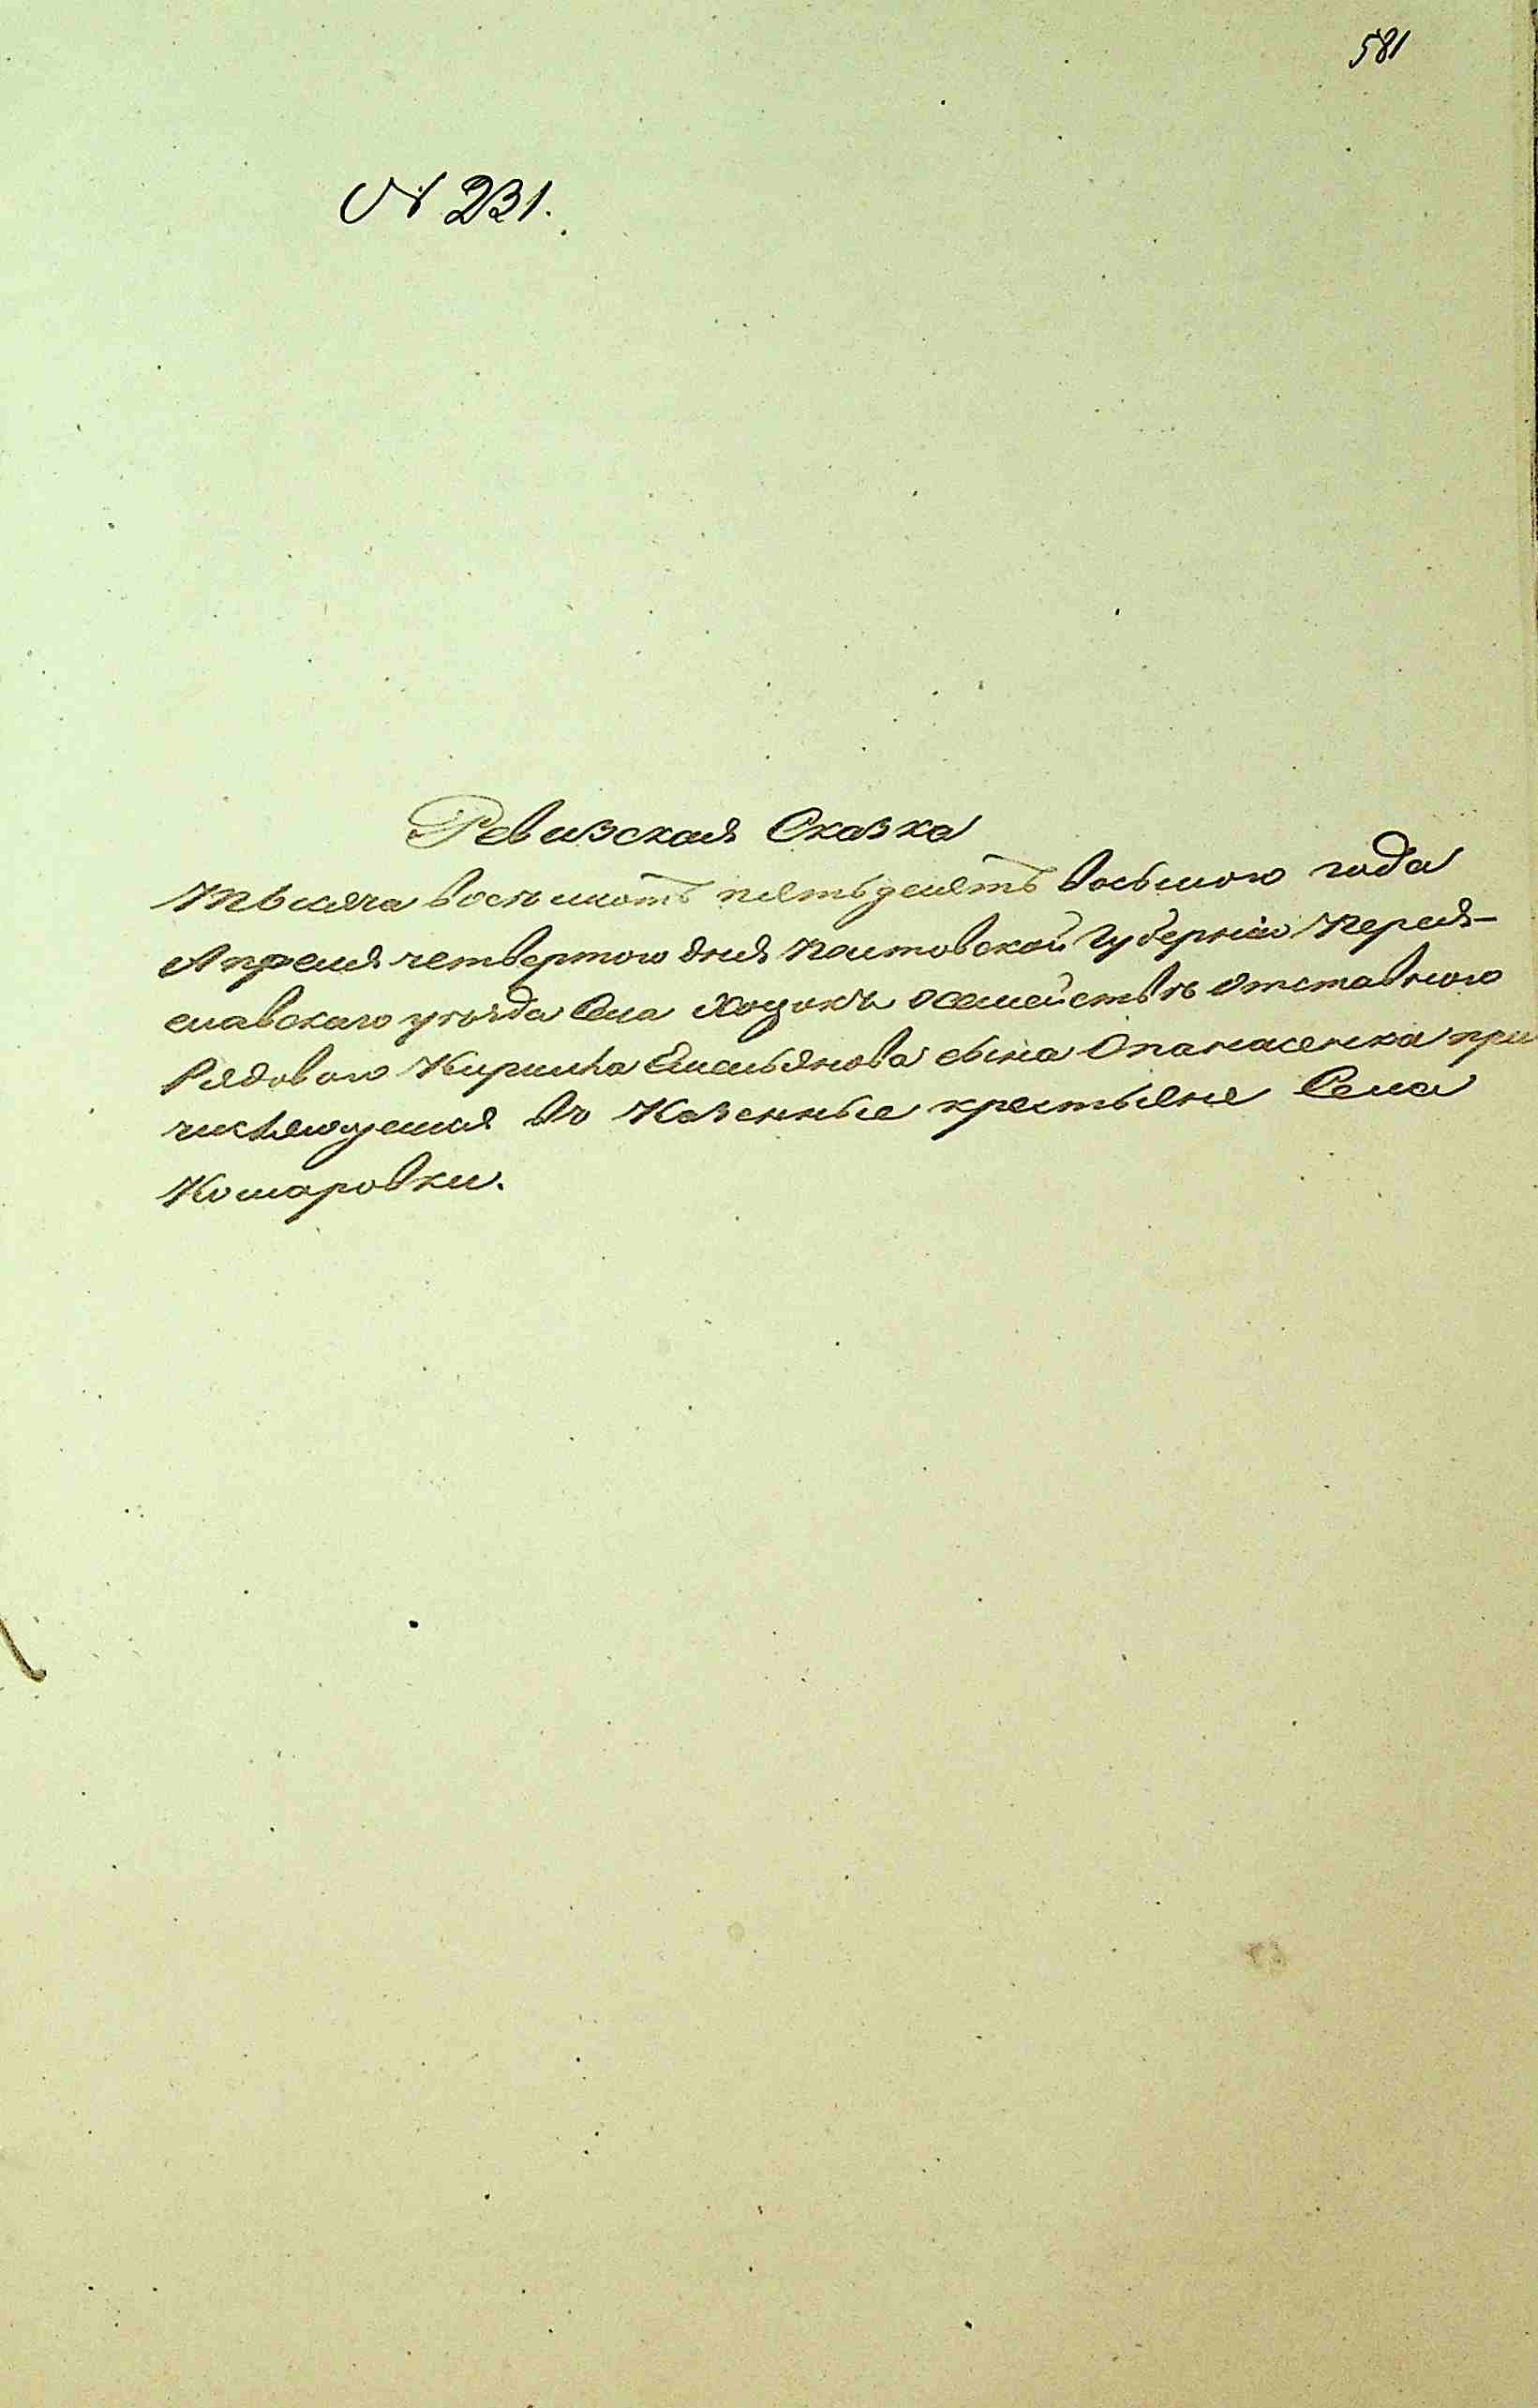 581
№ 231.
Ревизская Сказка
Тысяча восемьсотъ пятьдесятъ восьмого года
Апреля четвертого дня Полтовской Губерніи Перея-
славскаго уѣзда Села Хоцокъ о семействѣ Отставного
Рядового Кирилла Емельянова сына Опанасенка при
числяющемся въ Казенные крестьяне Села
Комаровки.